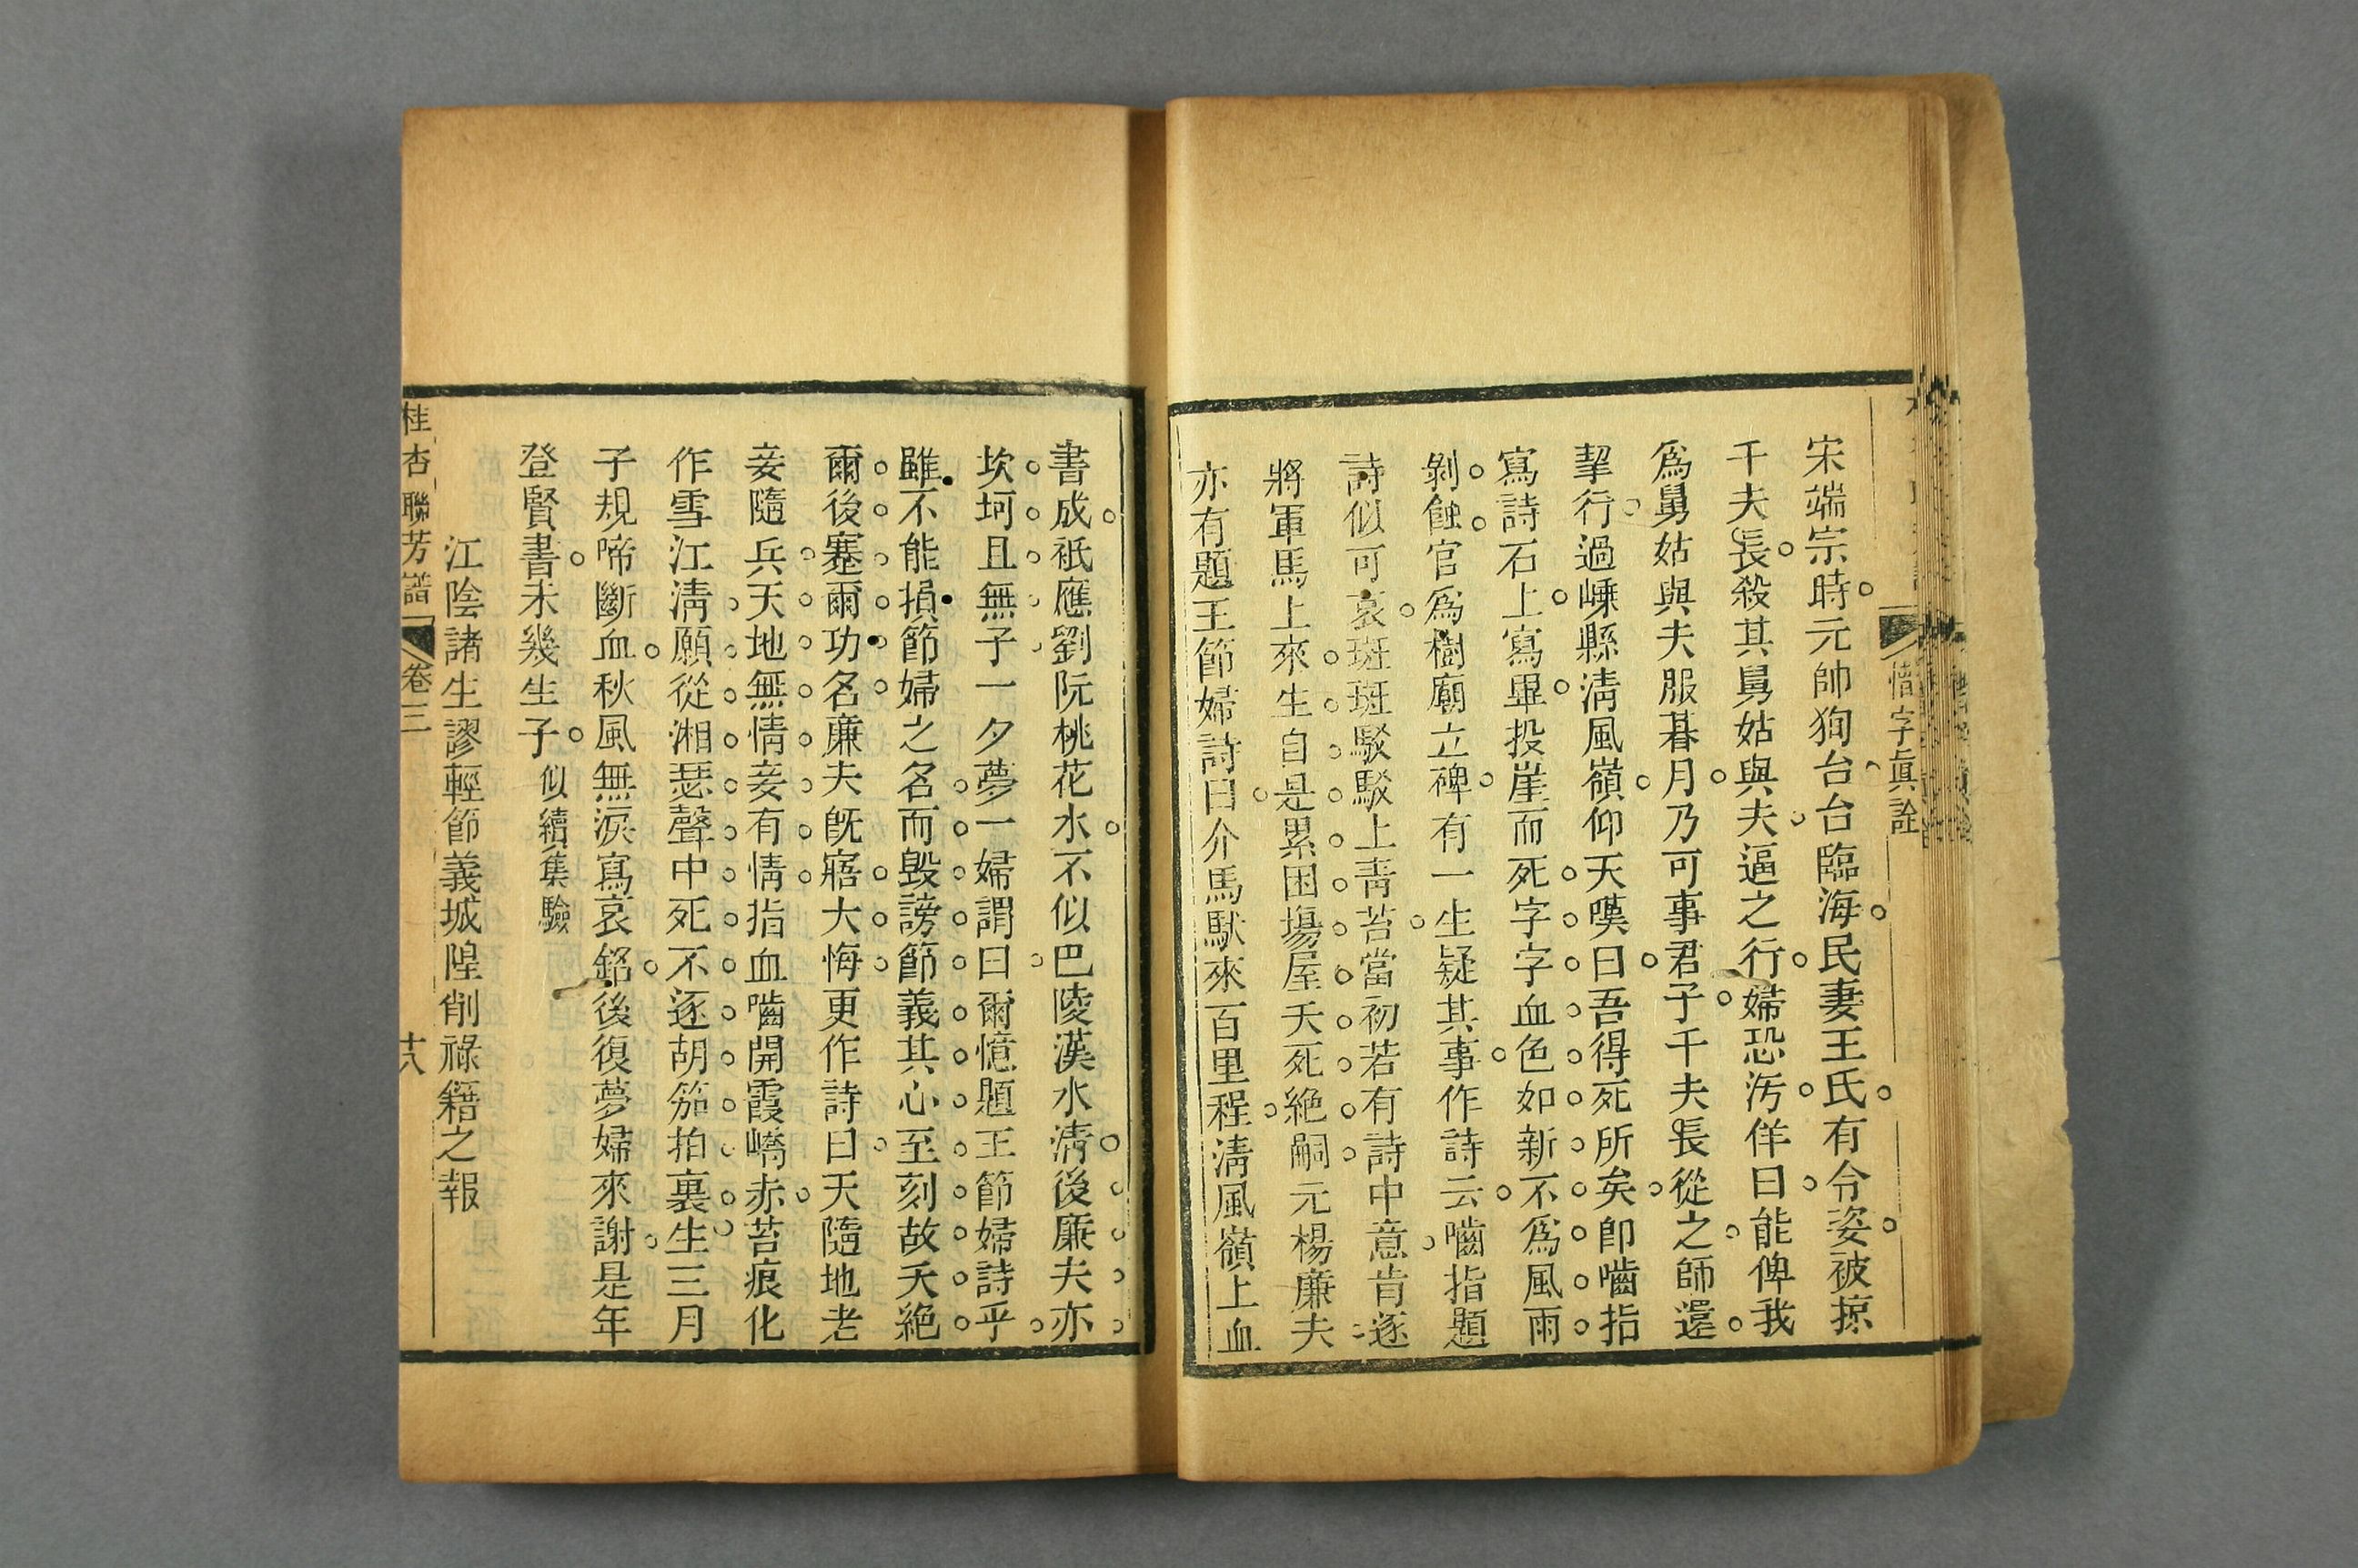 惜字眞詮
宋端宗時元帥狥台台臨海民妻王氏有令姿被掠
千夫長殺其舅姑與夫逼之行婦恐汚佯曰能俾我
爲舅姑與夫服朞月乃可事君子千夫長從之師還
挈行過嵊縣淸風嶺仰天嘆曰吾得死所矣卽嚙指
寫詩石上寫畢投崖而死字字血色如新不爲風雨
剝蝕官爲樹廟立碑有一生疑其事作詩云嚙指題
詩似可哀斑斑駁駁上青苔當初若有詩中意肯逐
將軍馬上來生自是累困場屋夭死絶嗣元楊廉夫
亦有題王節婦詩曰介馬馱來百里程淸風嶺上血
書成祇應劉阮桃花水不似巴陵漢水淸後廉夫亦
坎坷且無子一夕夢一婦謂曰爾憶題王節婦詩乎
雖不能損節婦之名而毀謗節義其心至刻故夭絶
爾後塞爾功名廉夫旣寤大悔更作詩曰天隨地老
妾隨兵天地無情妾有情指血嚙開霞嶠赤苔痕化
作雪江淸願從湘瑟聲中死不逐胡笳拍裏生三月
子規啼斷血秋風無淚寫哀銘後復夢婦來謝是年
登賢書未幾生子 似續集驗
江陰諸生謬輕節義城隍削祿籍之報
桂杏聯芳譜 卷三 十八